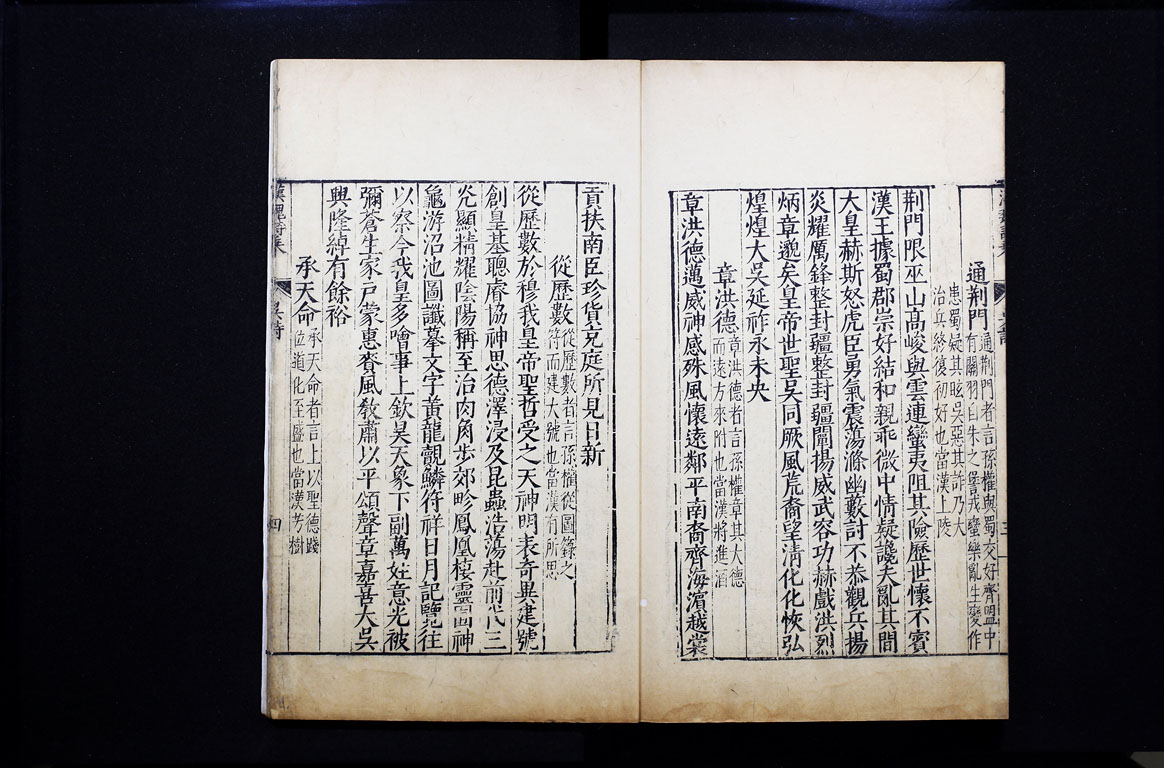 通荆門
通荆門者言孫權與蜀交好齊盟中
有關羽自失之愆戎蠻樂亂生變作
患蜀疑其眩吳惡其詐乃大
治兵終復初好也當漢上陵
荆門限巫山高峻與雲連蠻夷阻其險歷世懷不賓
漢王據蜀郡崇好結和親乖微中情疑讒夫亂其間
大皇赫斯怒虎臣勇氣震蕩滌幽藪討不恭觀兵揚
炎耀厲鋒整封疆整封疆闡揚威武容功赫戲洪烈
炳章邈矣皇帝世聖吳同厥風荒裔望清化化恢弘
煌煌大吳延祚永未央
章洪德
章洪德者言孫權章其大德
而遠方來附也當漢將進酒
章洪德邁威神感殊風懷遠鄰平南裔齊海濵越裳
貢扶南臣珍貨充庭所見日新
從歷數
從歷數者言孫權從圖籙之
符而建大號也當漢有所思
從歷數於穆我皇帝聖哲受之天神明表奇異建號
創皇基聰睿協神思德澤浸及昆蟲浩蕩赴前代三
光顯精耀陰陽稱至治肉角步郊畛鳳凰棲靈囿神
龜游沼池圖讖摹文字黃龍覿鱗符祥日月記覽往
以察今我皇多噲事上欽昊天象下副萬姓意光被
彌蒼生家戶蒙惠賚風教肅以平頌聲章嘉喜大吳
興隆綽有餘裕
承天命
承天命者言上以聖德踐
位道化至盛也當漢芳樹
吳詩
四